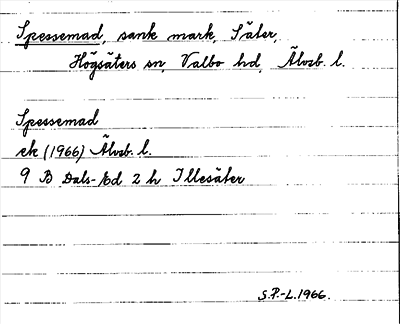 Spessemad, sank mark, Säter,
Högsäters sn, Valbo hd, Älvsb. l.
Spessemad
ek (1966) Älvsb. l.
9 B Dals-Ed 2 h Illesäter
S.P.-L. 1966.